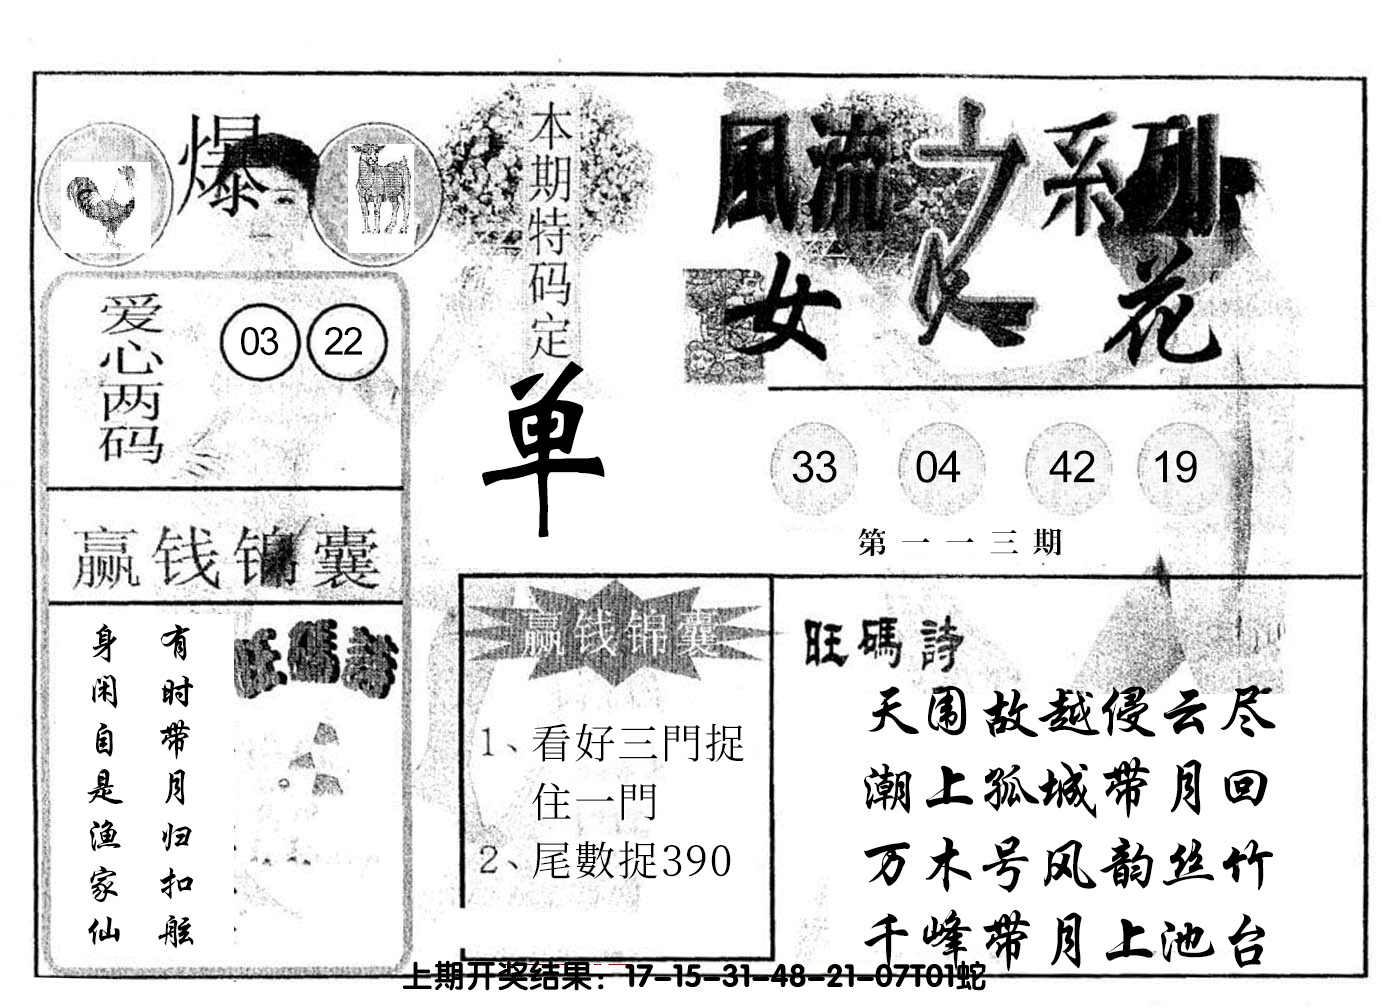 爆
本期特码定
单
風流之系列
女人花
爱心两码
03 22
33 04 42 19
第一一三期
赢钱锦囊
有时带月归扣舷
身闲自是渔家仙
旺碼詩
赢钱锦囊
1、看好三門捉
住一門
2、尾數捉390
旺碼詩
天围故越侵云尽
潮上孤城带月回
万木号风韵丝竹
千峰带月上池台
上期开奖结果：17-15-31-48-21-07T01蛇